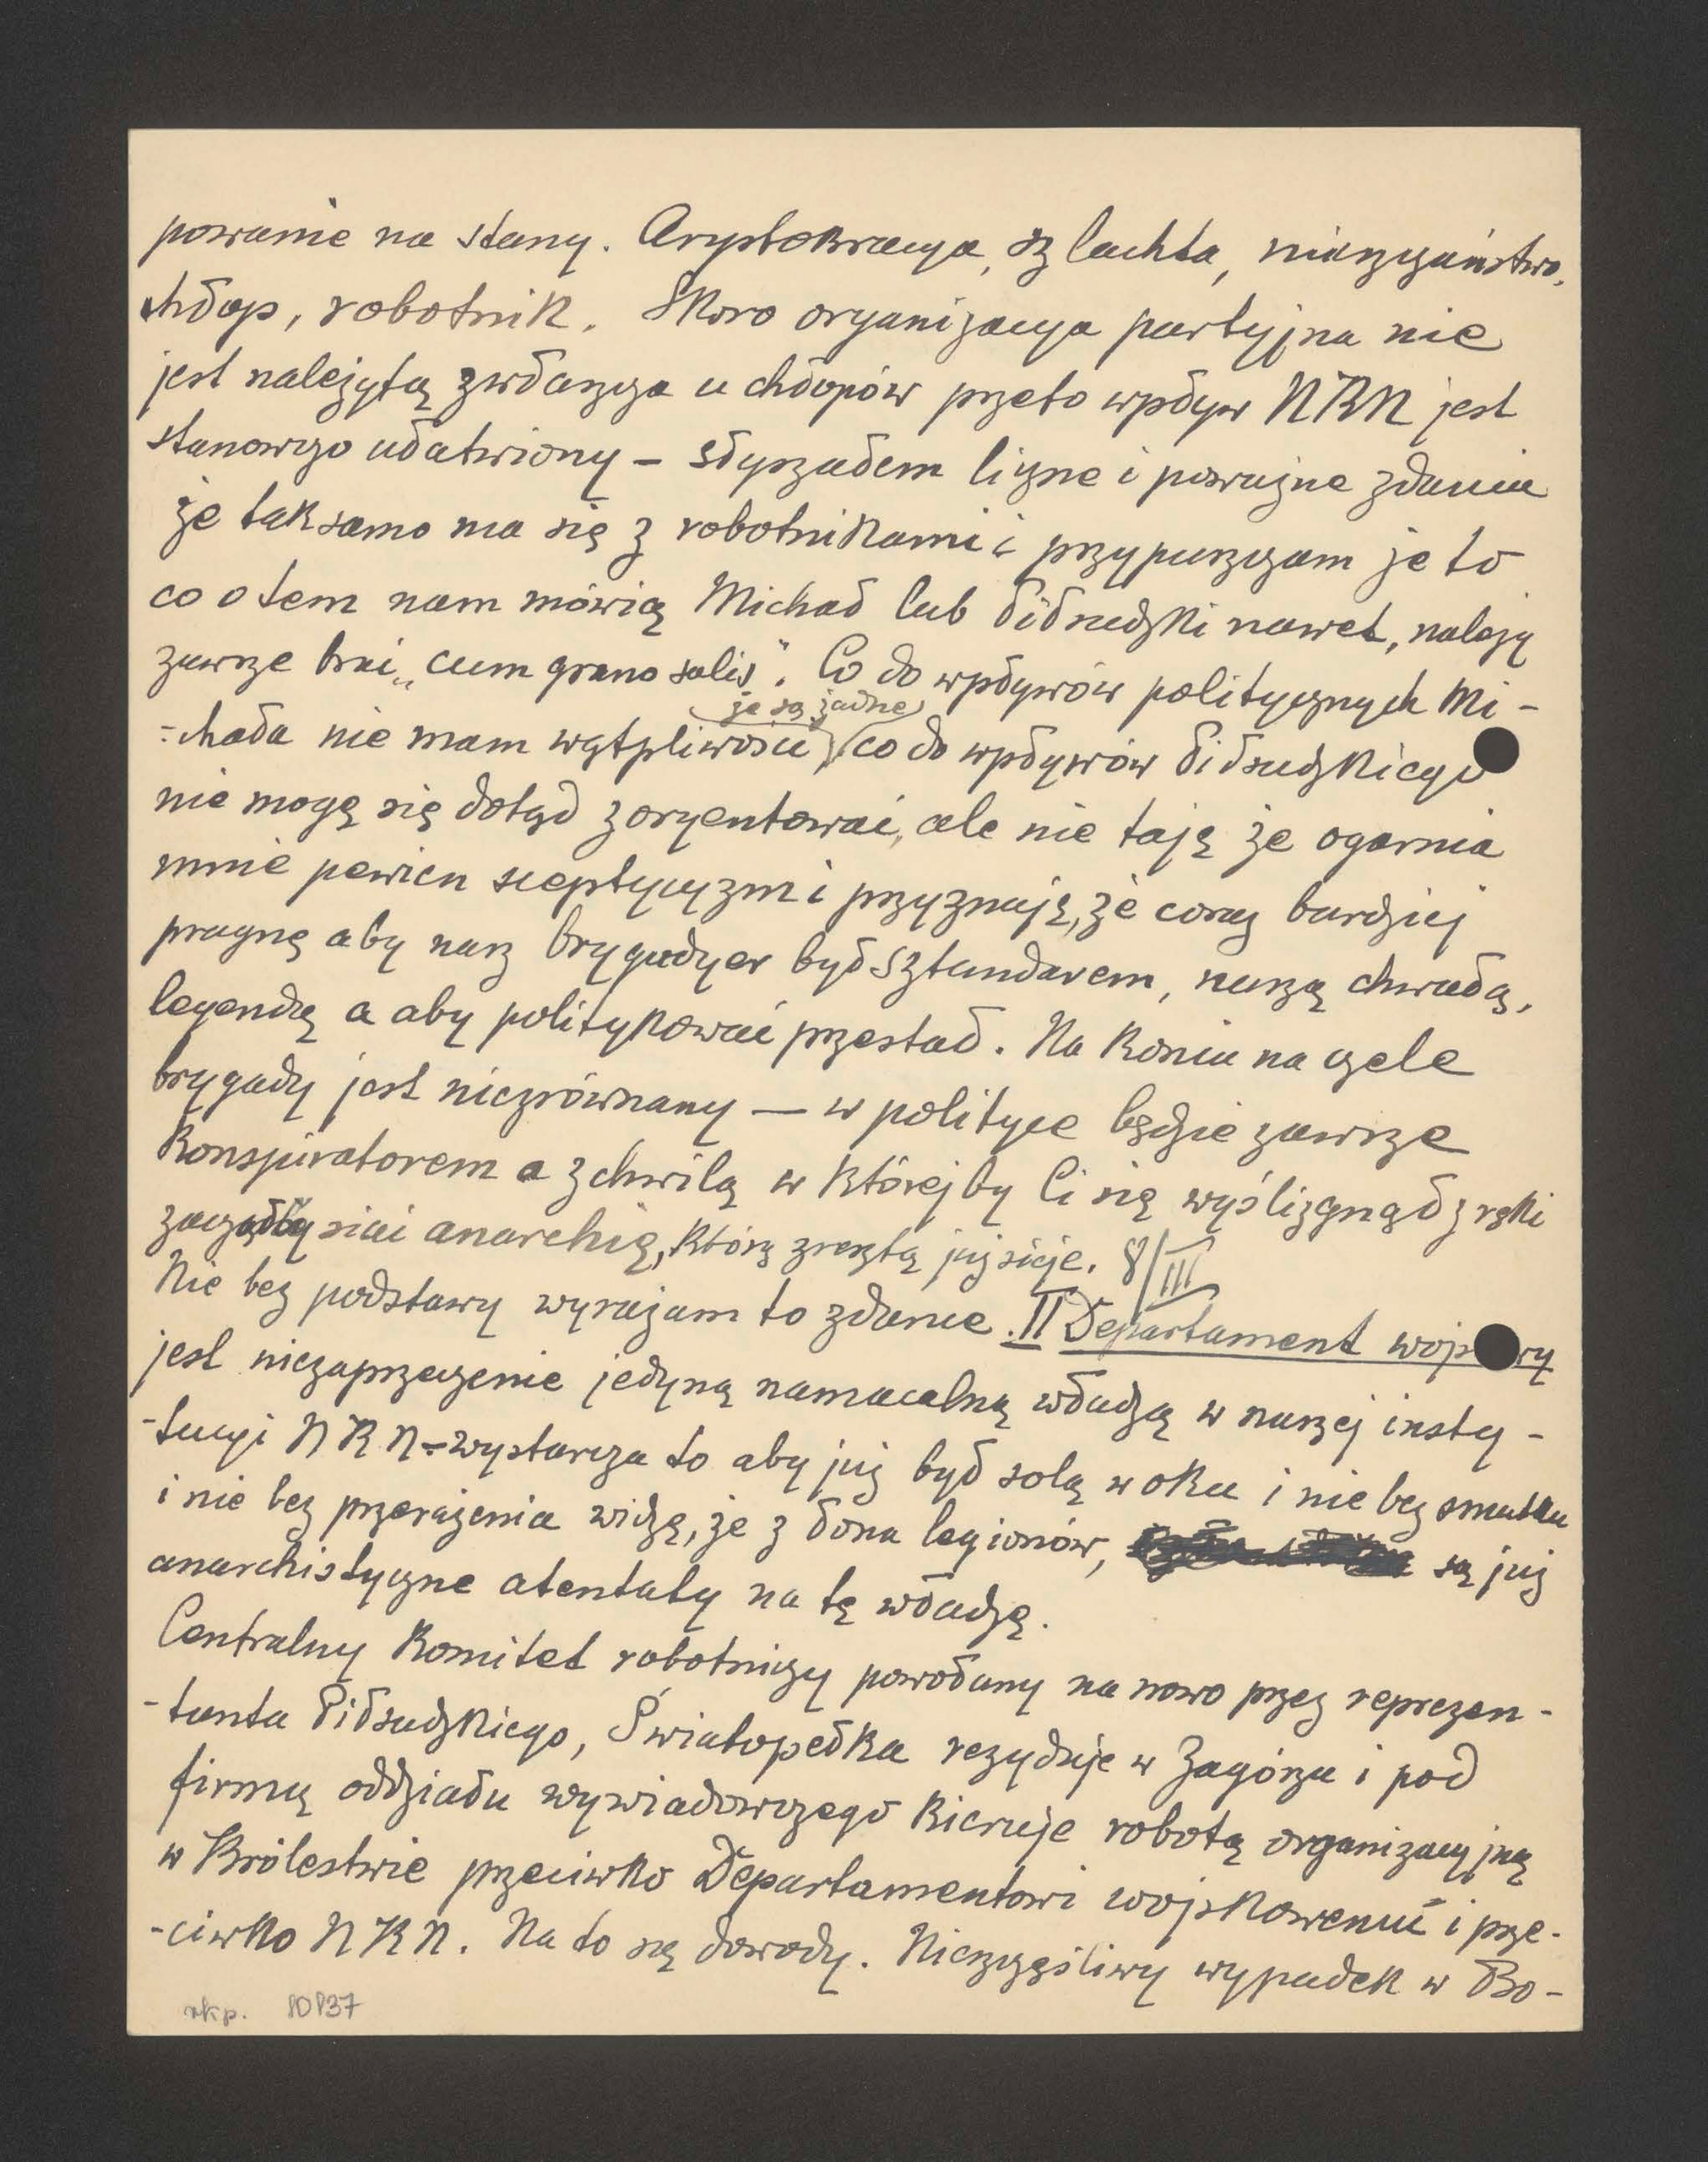 powanie na stany. Arystokracya, szlachta, mieszczaństwo,
chłop, robotnik. Skoro organizacya partyjna nie
jest należytą zwłaszcza u chłopów przeto wpływ NKN jest
stanowczo ułatwiony – słyszałem liczne i poważne zdania
że taksamo ma się z robotnikami i przypuszczam że to
co o tem nam mówią Michał lub Piłsudzki nawet, należy
zawsze brać „cum grano salis". Co do wpływów politycznych Mi-
że są żadne
-chała nie mam wątpliwości, co do wpływów Piłsudzkiego
nie mogę się dotąd zoryentować, ale nie taję że ogarnia
mnie pewien sceptycyzm i przyznaję, że coraz bardziej
pragnę aby nasz brygadyer był sztandarem, naszą chwałą,
legendą a aby politykować przestał. Na koniu na czele
brygady jest niezrównany — w polityce będzie zawsze
konspiratorem a z chwilą w którejby Ci się wyślizgnął z ręki
zacząłby siać anarchię, którą zresztą już sieje. 8/III
Nie bez podstawy wyrażam to zdanie. II Departament wojskowy
jest niezaprzeczenie jedyną namacalną władzą w naszej insty-
-tucyi NKN – wystarcza to aby już był solą w oku i nie bez smutku
i nie bez przerażenia widzę, że z łona legionów, są już
anarchistyczne atentaty na tę władzę.
Centralny Komitet robotniczy powołany na nowo przez reprezen-
-tanta Piłsudzkiego, Światopełka rezyduje w Zagórzu i pod
firmą oddziału wywiadowczego kieruje robotą organizacyjną
w Królestwie przeciwko Departamentowi wojskowemu i prze-
-ciwko NKN. Na to są dowody. Nieszczęśliwy wypadek w Bo-
rkp. 10837